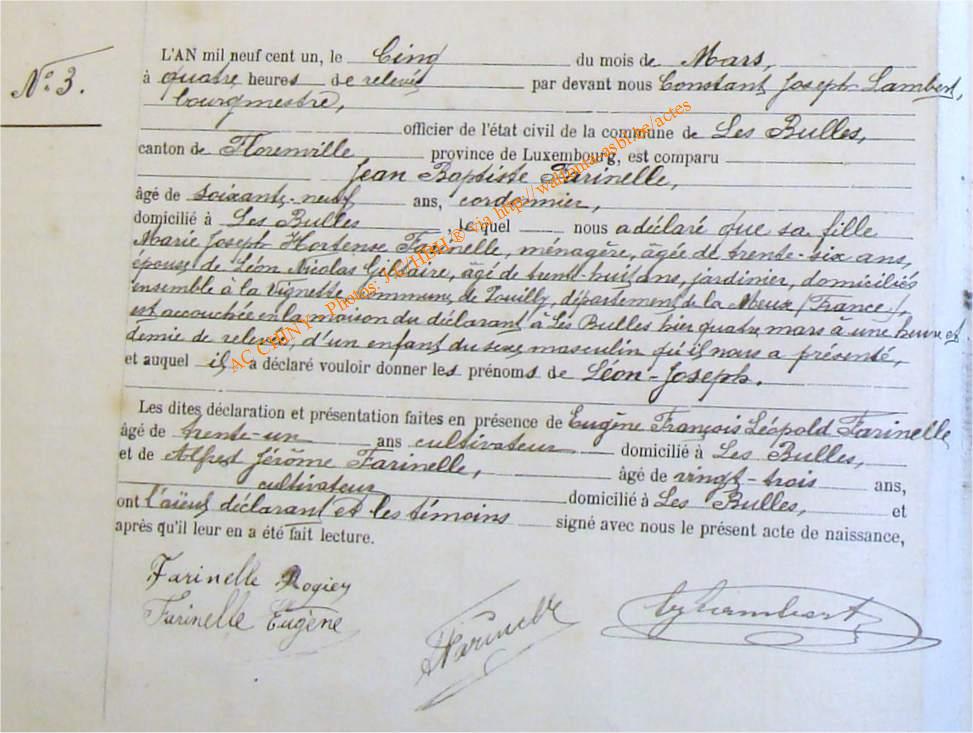 N° 3.
L'AN mil neuf cent un, le Cinq du mois de Mars,
à quatre heures de relevée par devant nous Constant Joseph Lambert,
bourgmestre,
officier de l'état civil de la commune de Les Bulles,
canton de Florenville province de Luxembourg, est comparu
Jean Baptiste Farinelle,
âgé de soixante-neuf ans, cordonnier,
domicilié à Les Bulles lequel nous a déclaré que sa fille
Marie Joseph Hortense Farinelle, ménagère, âgée de trente-six ans,
épouse de Léon Nicolas, âgé de trente-huit ans, jardinier, domiciliés
ensemble à la Vignette, commune de Pouilly, département de la Meuse (France),
est accouchée en la maison du déclarant à Les Bulles hier quatre mars à une heure et
demie de relevée, d'un enfant du sexe masculin qu'il nous a présenté,
et auquel il a déclaré vouloir donner les prénoms de Léon-Joseph.
Les dites déclaration et présentation faites en présence de Eugène François Léopold Farinelle
âgé de trente-un ans cultivateur domicilié à Les Bulles,
et de Alfred Jérôme Farinelle, âgé de vingt-trois ans,
cultivateur domicilié à Les Bulles, et
ont l'aïeul déclarant et les témoins signé avec nous le présent acte de naissance,
après qu'il leur en a été fait lecture.
Farinelle
Farinelle Eugène
AC CHINY - Photos: © via http://wallonia-asbl.be/actes